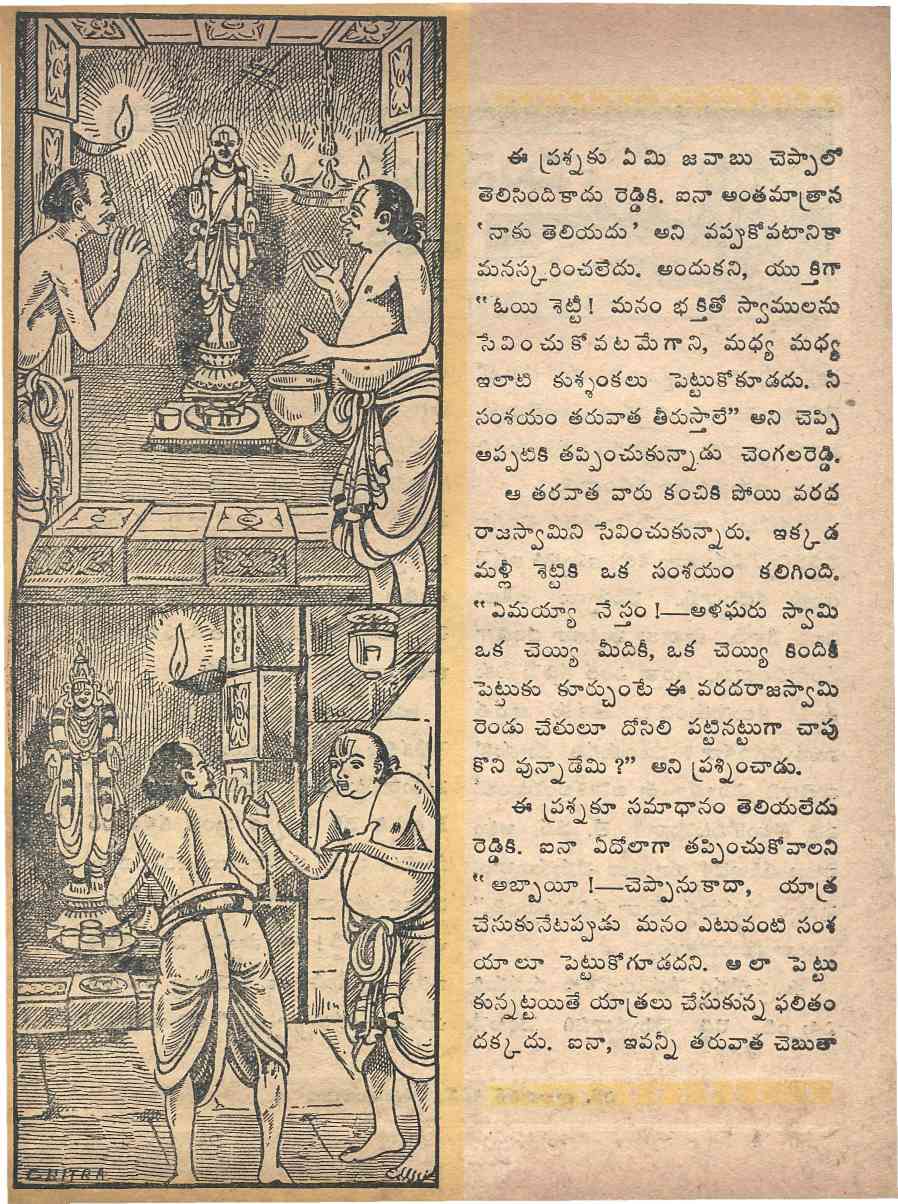 ఈ ప్రశ్నకు ఏమి జవాబు చెప్పాలో
తెలిసిందికాదు రెడ్డికి. ఐనా అంతమాత్రాన
‘నాకు తెలియదు’ అని వప్పుకోవటానికా
మనస్కరించలేదు. అందుకని, యుక్తిగా
“ఓయి శెట్టీ! మనం భక్తితో స్వాములను
సేవించుకోవటమేగాని, మధ్య మధ్య
ఇలాటి కుశ్శంకలు పెట్టుకోకూడదు. నీ
సంశయం తరువాత తీరుస్తాలే” అని చెప్పి
అప్పటికి తప్పించుకున్నాడు చెంగలరెడ్డి.
ఆ తరవాత వారు కంచికి పోయి వరద
రాజస్వామిని సేవించుకున్నారు. ఇక్కడ
మళ్లీ శెట్టికి ఒక సంశయం కలిగింది.
“ఏమయ్యా నేస్తం!—అళఘరు స్వామి
ఒక చెయ్యి మీదికీ, ఒక చెయ్యి కిందికీ
పెట్టుకు కూర్చుంటే ఈ వరదరాజస్వామి
రెండు చేతులూ దోసిలి పట్టినట్టుగా చాపు
కొని వున్నాడేమి?” అని ప్రశ్నించాడు.
ఈ ప్రశ్నకూ సమాధానం తెలియలేదు
రెడ్డికి. ఐనా ఏదోలాగా తప్పించుకోవాలని
“అబ్బాయీ!—చెప్పానుకాదా, యాత్ర
చేసుకునేటప్పుడు మనం ఎటువంటి సంశ
యాలూ పెట్టుకోగూడదని. ఆలా పెట్టు
కున్నట్టయితే యాత్రలు చేసుకున్న ఫలితం
దక్కదు. ఐనా, ఇవన్నీ తరువాత చెబుతా
CHITRA